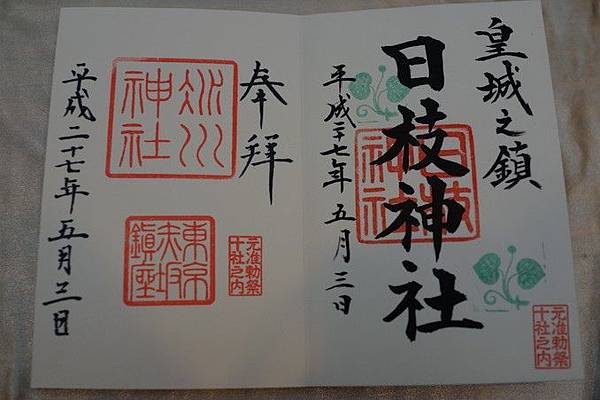 皇城之鎮
日枝神社
日枝
神社
平成二十七年五月三日
元准勅祭
十社之内
奉拝
氷川
神社
東京
赤坂
鎮座
元准勅祭
十社之内
平成二十七年五月三日